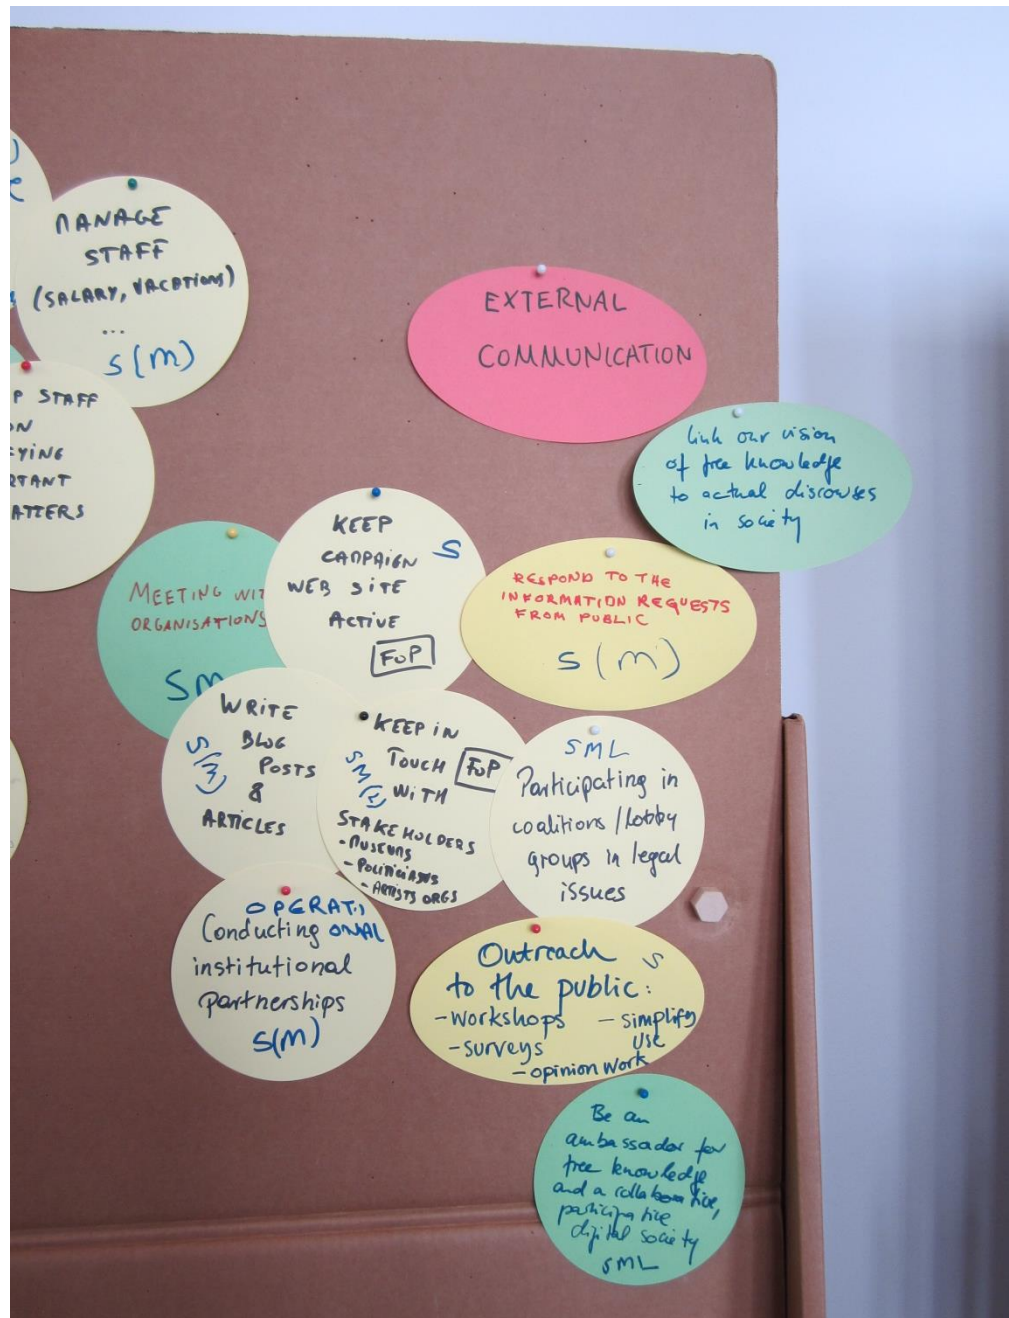 MANAGE
STAFF
(SALARY, VACATIONS)
...
S (M)
P STAFF
ON
YING
RTANT
ATTERS
EXTERNAL
COMMUNICATION
link our vision
of free knowledge
to actual discourses
in society
KEEP
CAMPAIGN
WEB SITE
ACTIVE
S
FoP
MEETING WIT
ORGANISATIONS
SM
RESPOND TO THE
INFORMATION REQUESTS
FROM PUBLIC
S (M)
WRITE
BLOG
POSTS
&
ARTICLES
S(M)
KEEP IN
TOUCH
WITH
STAKEHOLDERS
- MUSEUMS
- POLITICIANS
- ARTISTS ORGS
FoP
SM(L)
SML
Participating in
coalitions / lobby
groups in legal
issues
OPERATI
ONAL
Conducting
institutional
partnerships
S(M)
Outreach
to the public:
- workshops
- surveys
- simplify
use
- opinion work
S
Be an
ambassador for
free knowledge
and a collaborative,
participative
digital society
SML